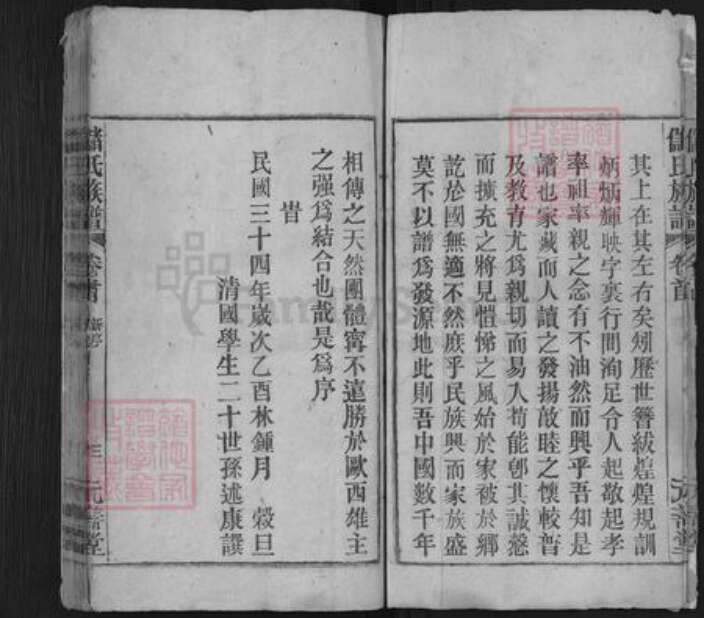 儲氏族譜 卷首
元善堂
其上在其左右矣矧歷世簪紱煌煌規訓
炳炳輝映字裏行間洵足令人起敬起孝
率祖率親之念有不油然而興乎吾知是
譜也家藏而人讀之發揚敵睦之懷較普
及教育尤爲親切而易入苟能卽其誠慤
而擴充之將見愷悌之風始於家被於鄉
訖於國無適不然庶乎民族興而家族盛
莫不以譜爲發源地此則吾中國數千年
相傳之天然團體甯不遠勝於歐西雄主
之强爲結合也哉是爲序
旹
民國三十四年歲次乙酉林鍾月 穀旦
清國學生二十世孫述康譔
儲氏族譜
卷首
三
元善堂